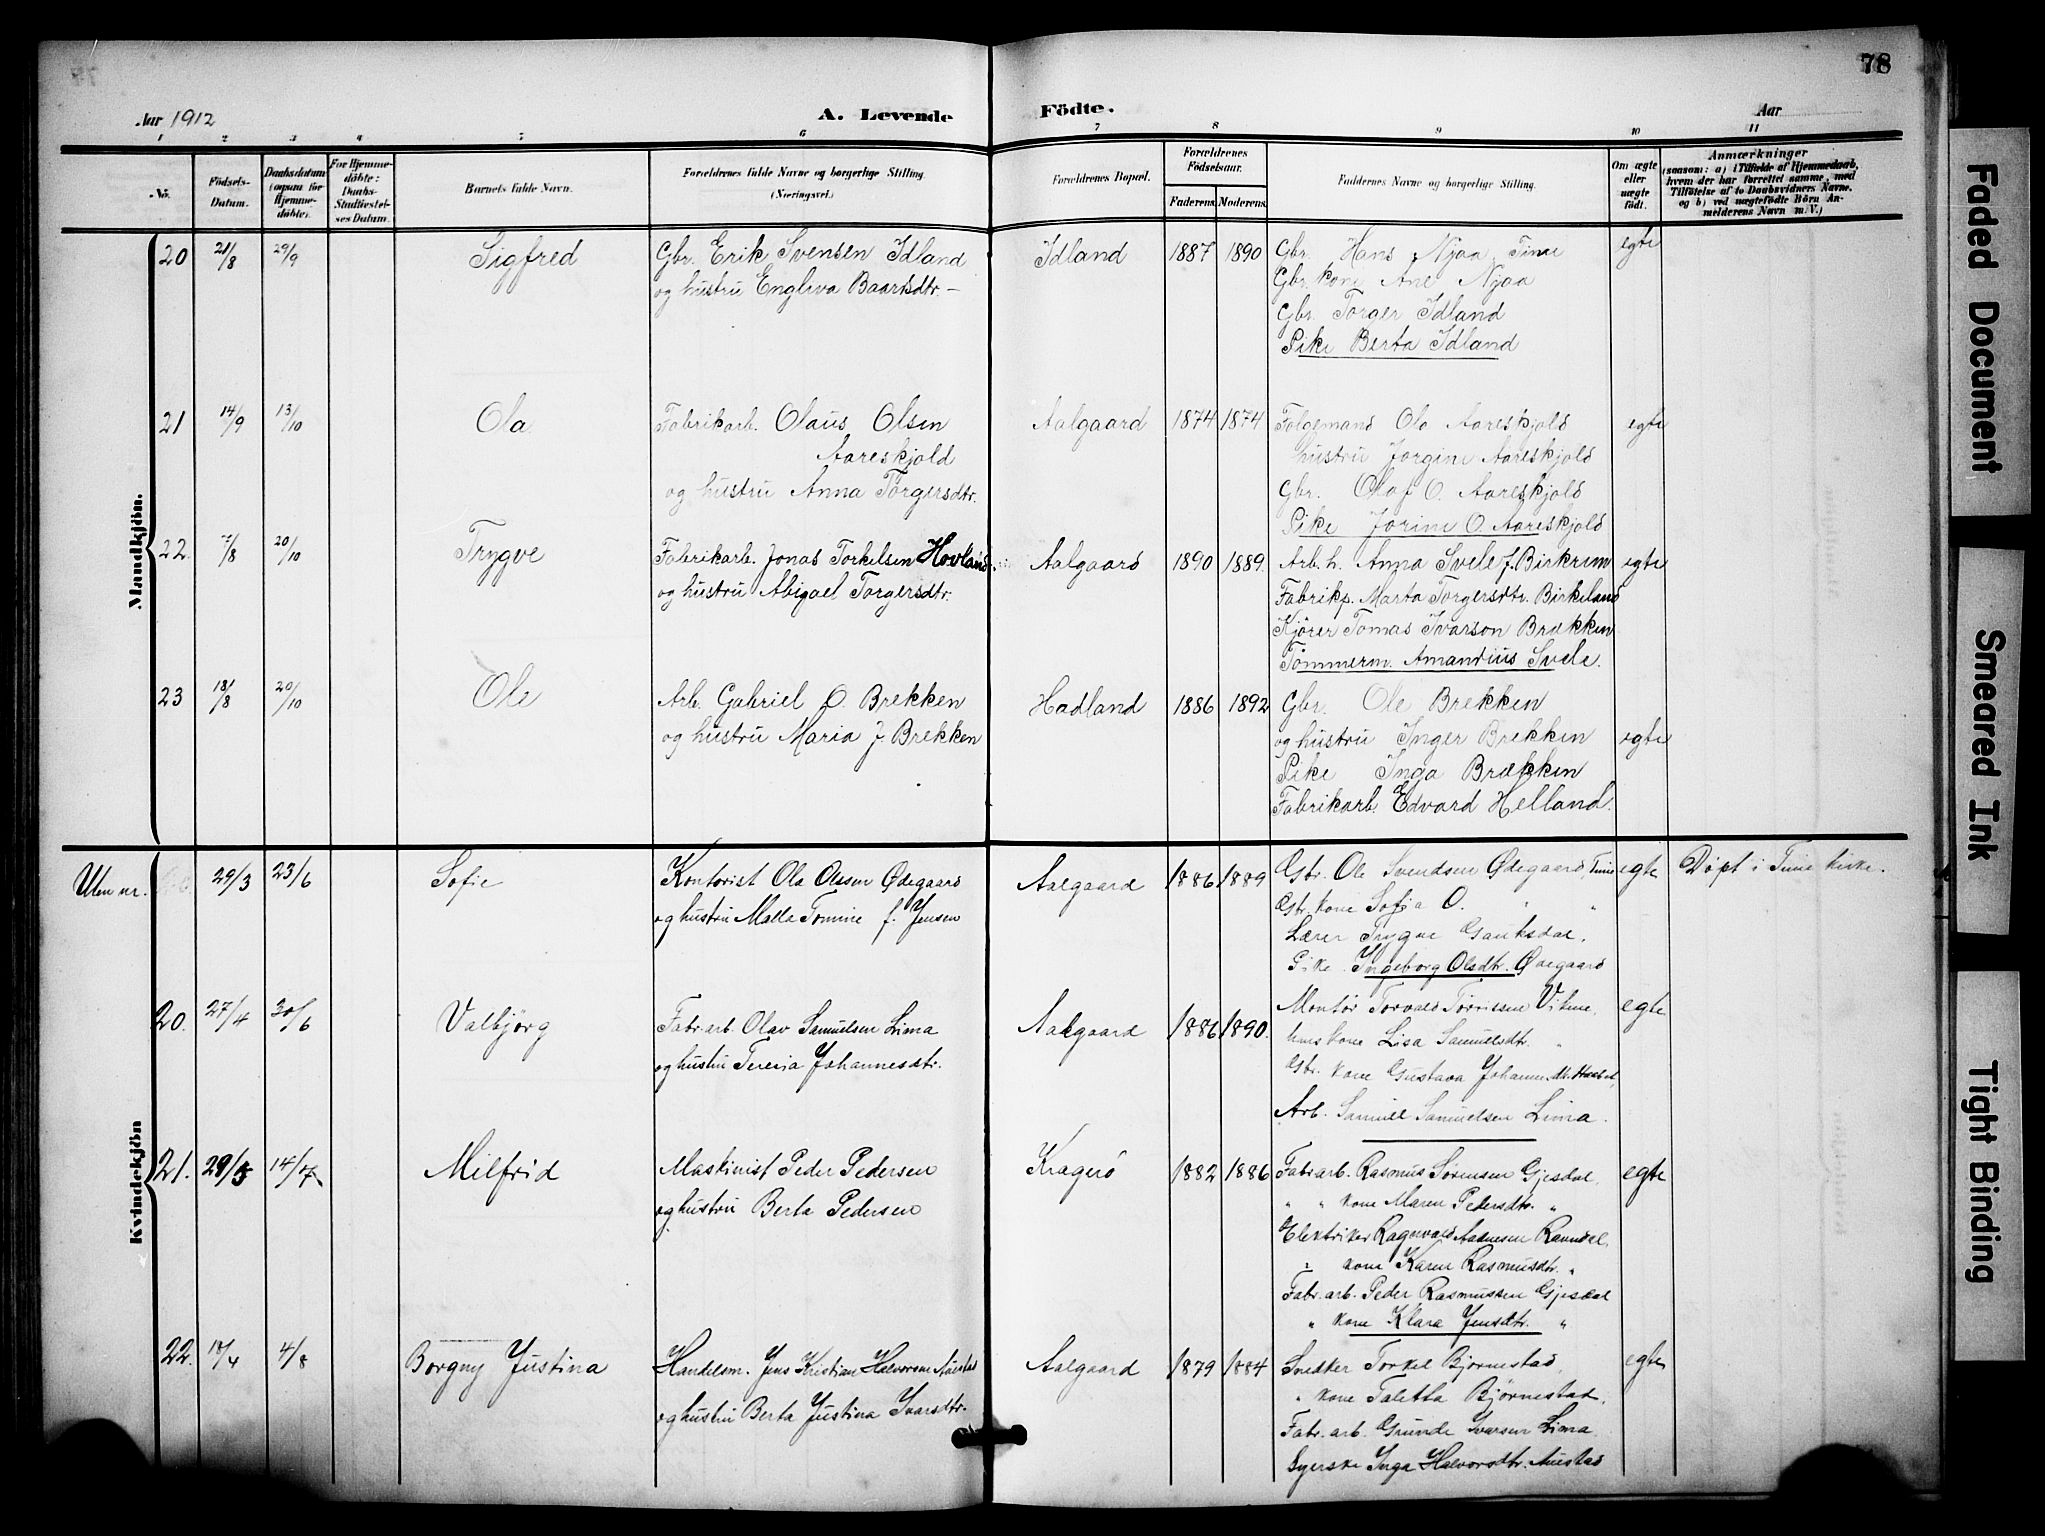 78
Aar 1912
A. Levende Födte.
Aar
1 2 3 4 5 6 7 8 9 10 11
No.
Födsels-Datum.
Daabsdatum (ogsaa for Hjemmedöbte).
For Hjemmedöbte: Daabs-Stadfæstelses Datum.
Barnets fulde Navn.
Forældrenes fulde Navne og borgerlige Stilling. (Næringsvei.)
Forældrenes Bopæl.
Forældrenes Födselsaar.
Faderens. Moderens.
Faddernes Navne og borgerlige Stilling.
Om ægte eller uægte födt.
Anmærkninger
(saasom: a) i Tilfælde af Hjemmedaab, hvem der har forrettet samme, med Tilföielse af to Daabsvidners Navne, og b) ved uægtefödte Börn Anmelderens Navn m. V.)
Mandkjön.
20 21/8 29/9 Sigfred Gbr. Erik Svensen Idland Idland 1887 1890 Gbr. Hans Njaa, Time egte
og hustru Engliva Baardsdtr. — Gbr. kone Ane Njaa
Gbr. Torger Idland
Pike Berta Idland
21 14/9 13/10 Ola Fabrikarb. Olaus Olsen Aalgaard 1874 1874 Folgemand Ola Aareskjold egte
Aareskjold hustru Jorgine Aareskjold
og hustru Anna Torgersdtr. Gbr. Olaf O. Aareskjold
Pike Jorine O. Aareskjold
22. /8 20/10 Trygve Fabrikarb. Jonas Torkelsen Hovland Aalgaard 1890 1889. Arb. h. Anna Svele f. Birkrem egte
og hustru Abigael Torgersdtr. Fabrikp. Marta Torgersdtr. Birkeland
Kjörer Tomas Ivarson Brækken
Tömmerm. Amandius Svele.
23 18/8 20/10 Ole Arb. Gabriel O. Brekken Hadland 1886 1892 Gbr. Ole Brekken
og hustru Maria J. Brekken og hustru Inger Brekken egte
Pike Inga Brækken
Fabrikarb. Edvard Helland.
Kvindekjön
Uten nr. 29/3 23/6 Sofie Kontorist Ola Olssen Ødegaard Aalgaard 1886 1889 Gbr. Ole Svendsen Ødegaard Time egte Døpt i Time kirke.
og hustru Malla Tomine f. Jensen Gbr. kone Sofia O. " "
Lærer Trygve
Pike Ingeborg Olsdtr. Ødegaard
20. 27/4 30/6 Valbjörg Fabr. arb. Olav Samuelsen Lima Aalgaard 1886 1890. Montør Torvald Törrissen Vikene, egte
og hustru Johannesdtr. hans kone Lisa Samuelsdtr. "
Gbr. kone Gustava
Arb. Samuel Samuelsen Lima.
21. 29/5 14/7 Milfrid Maskinist Peder Pedersen Kragerö 1882 1886 Fabr. arb. Rasmus Sørensen Gjesdal, egte
og hustru Berta Pedersen " " kone Maren Pedersdtr. "
Elektriker Ragnvald Ravndal,
" kone Karen Rasmusdtr. "
Fabr. arb. Peder Rasmussen Gjesdal
" kone Klara Jensdtr. "
22. /4 4/8 Borgny Justina Handelsm. Jens Kristian Halvorsen Auestad Aalgaard 1879 1884 Snedker Torkel Bjørnestad, egte
og hustru Berta Justina Ivarsdtr. " kone Taletta Björnestad,
Fabr. arb. Gunde Ivarsen Lima
Syerske Inga Halvorsdtr. Auestad
Faded Document
Smeared Ink
Tight Binding